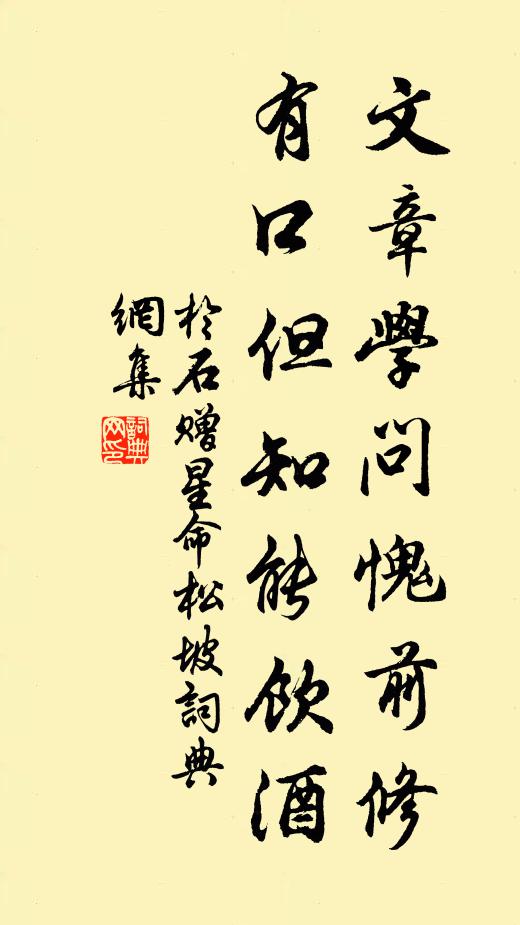 文章學問愧前修
有口但知能飲酒
於石贈星命松坡詞典
網集
詞典
網印